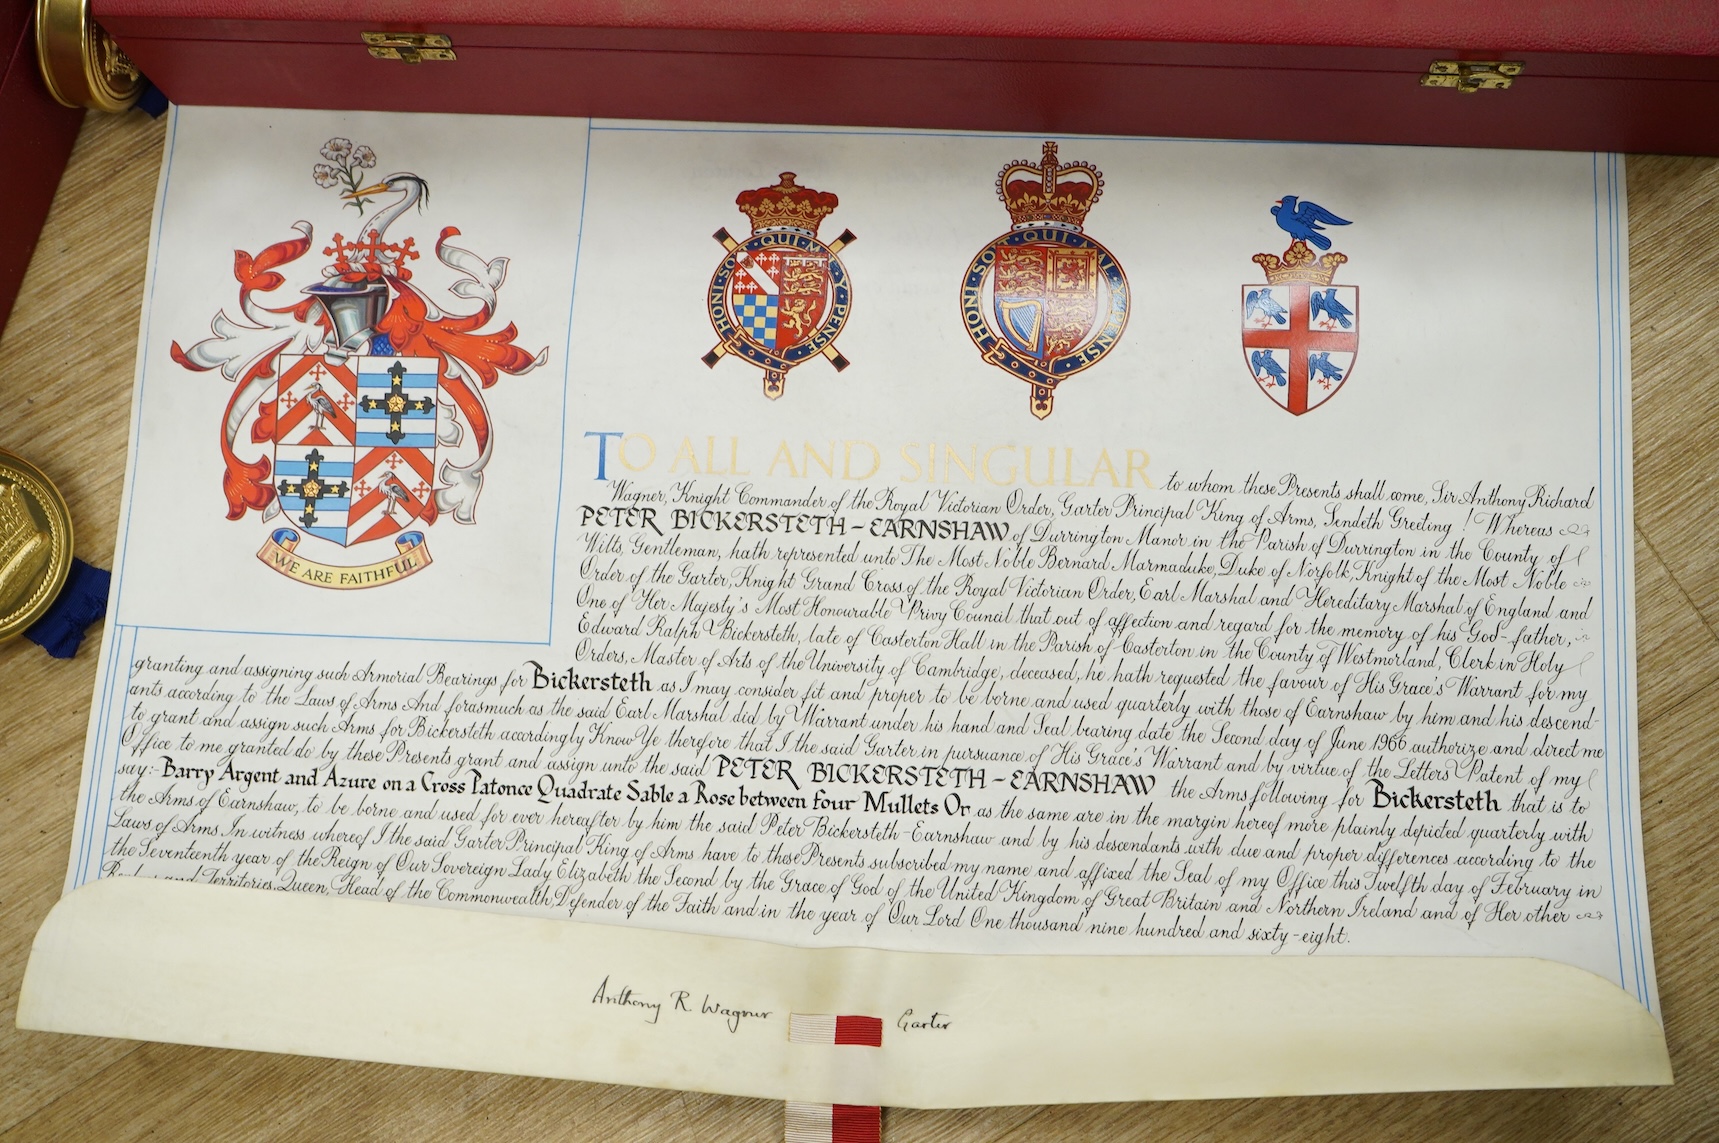 HONI · SOIT · QUI · MAL · Y · PENSE
HONI · SOIT · QUI · MAL · Y · PENSE
WE ARE FAITHFUL
TO ALL AND SINGULAR to whom these Presents shall come, Sir Anthony Richard
Wagner, Knight Commander of the Royal Victorian Order, Garter Principal King of Arms, Sendeth Greeting! Whereas
PETER BICKERSTETH-EARNSHAW of Durrington Manor in the Parish of Durrington in the County of
Wilts, Gentleman, hath represented unto The Most Noble Bernard Marmaduke, Duke of Norfolk, Knight of the Most Noble
Order of the Garter, Knight Grand Cross of the Royal Victorian Order, Earl Marshal and Hereditary Marshal of England and
One of Her Majesty's Most Honourable Privy Council that out of affection and regard for the memory of his God-father,
Edward Ralph Bickersteth, late of Casterton Hall in the Parish of Casterton in the County of Westmorland, Clerk in Holy
Orders, Master of Arts of the University of Cambridge, deceased, he hath requested the favour of His Grace's Warrant for my
granting and assigning such Armorial Bearings for Bickersteth as I may consider fit and proper to be borne and used quarterly with those of Earnshaw by him and his descend-
ants according to the Laws of Arms And forasmuch as the said Earl Marshal did by Warrant under his hand and Seal bearing date the Second day of June 1966 authorize and direct me
to grant and assign such Arms for Bickersteth accordingly Know Ye therefore that I the said Garter in pursuance of His Grace's Warrant and by virtue of the Letters Patent of my
Office to me granted do by these Presents grant and assign unto the said PETER BICKERSTETH-EARNSHAW the Arms following for Bickersteth that is to
say:- Barry Argent and Azure on a Cross Patonce Quadrate Sable a Rose between four Mullets Or as the same are in the margin hereof more plainly depicted quarterly with
the Arms of Earnshaw, to be borne and used for ever hereafter by him the said Peter Bickersteth-Earnshaw and by his descendants with due and proper differences according to the
Laws of Arms. In witness whereof I the said Garter Principal King of Arms have to these Presents subscribed my name and affixed the Seal of my Office this Twelfth day of February in
the Seventeenth year of the Reign of Our Sovereign Lady Elizabeth the Second by the Grace of God of the United Kingdom of Great Britain and Northern Ireland and of Her other
Realms and Territories Queen, Head of the Commonwealth, Defender of the Faith and in the year of Our Lord One thousand nine hundred and sixty-eight.
Anthony R. Wagner Garter